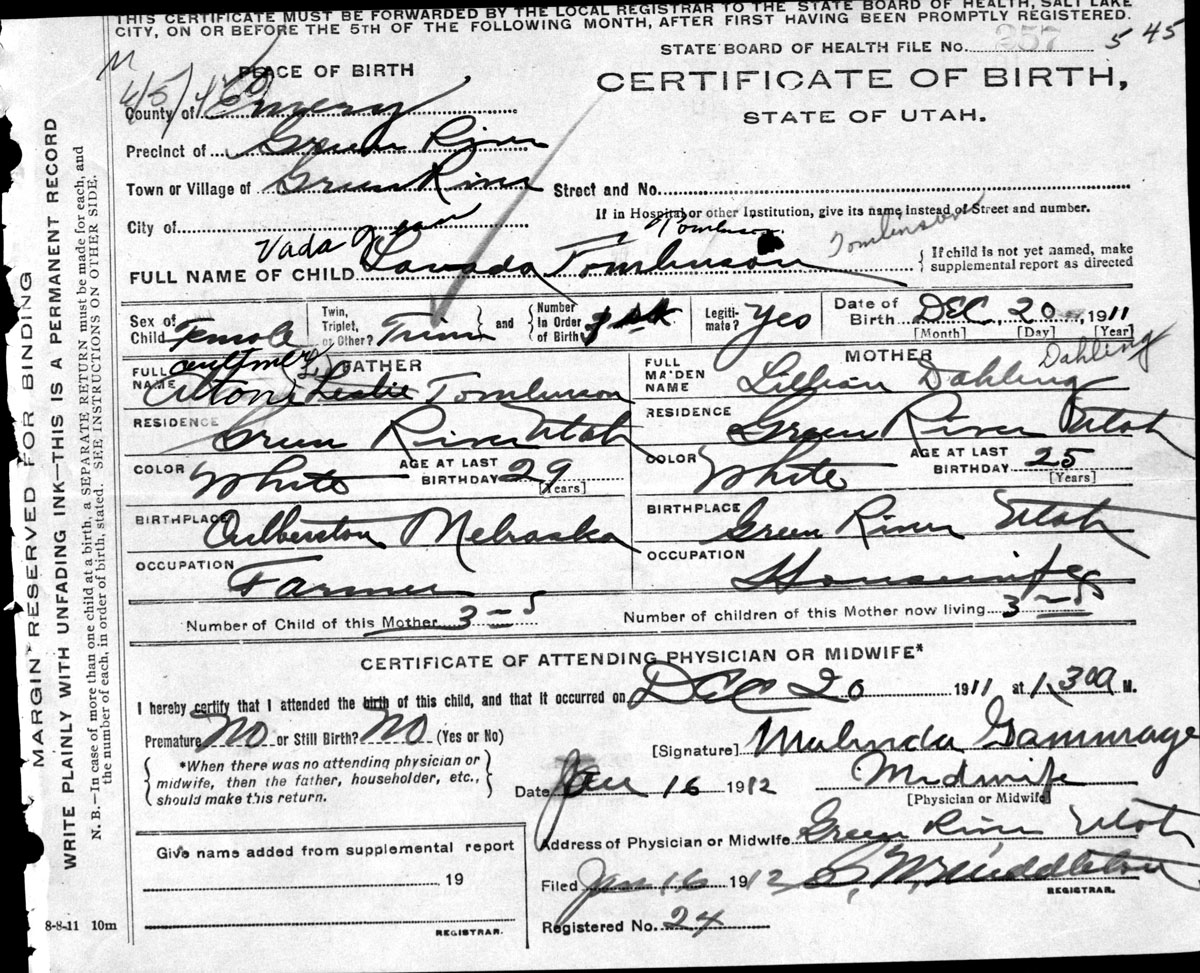 THIS CERTIFICATE MUST BE FORWARDED BY THE LOCAL REGISTRAR TO THE STATE BOARD OF HEALTH, SALT LAKE
CITY, ON OR BEFORE THE 5TH OF THE FOLLOWING MONTH, AFTER FIRST HAVING BEEN PROMPTLY REGISTERED.
STATE BOARD OF HEALTH FILE No. 257 5 45
PLACE OF BIRTH
CERTIFICATE OF BIRTH,
STATE OF UTAH.
County of Emery
Precinct of Green River
Town or Village of Green River Street and No.
If in Hospital or other Institution, give its name instead of Street and number.
City of
Vada Tomlinson Tomlinson
FULL NAME OF CHILD Lavada Tomlinson { If child is not yet named, make
supplemental report as directed
Sex of Child Female Twin, Triplet, or Other? and Number in Order of Birth Legiti-mate? Yes Date of Birth DEC 20 1911
[Month] [Day] [Year]
FATHER MOTHER Dahling
FULL NAME Alton Leslie Tomlinson FULL MAIDEN NAME Lillian Dahling
RESIDENCE Green River Utah RESIDENCE Green River Utah
COLOR White AGE AT LAST BIRTHDAY 29 [Years] COLOR White AGE AT LAST BIRTHDAY 25 [Years]
BIRTHPLACE Culberston Nebraska BIRTHPLACE Green River Utah
OCCUPATION Farmer OCCUPATION Housewife
Number of Child of this Mother 3 - 5 Number of children of this Mother now living 3 - 5
CERTIFICATE OF ATTENDING PHYSICIAN OR MIDWIFE*
I hereby certify that I attended the birth of this child, and that it occurred on DEC 20 1911 at 1:30 a M.
Premature No or Still Birth? No (Yes or No)
[Signature] Malinda Gammage
*When there was no attending physician or
midwife, then the father, householder, etc.,
should make this return.
Date Jan 16 1912 Midwife
[Physician or Midwife]
Address of Physician or Midwife Green River Utah
Filed Jan 16 1912 Middleton
REGISTRAR.
Registered No. 24
Give name added from supplemental report
19
REGISTRAR.
8-8-11 10m
MARGIN RESERVED FOR BINDING
WRITE PLAINLY WITH UNFADING INK—THIS IS A PERMANENT RECORD
N. B.—In case of more than one child at a birth, a SEPARATE RETURN must be made for each, and
the number of each, in order of birth, stated. SEE INSTRUCTIONS ON OTHER SIDE.